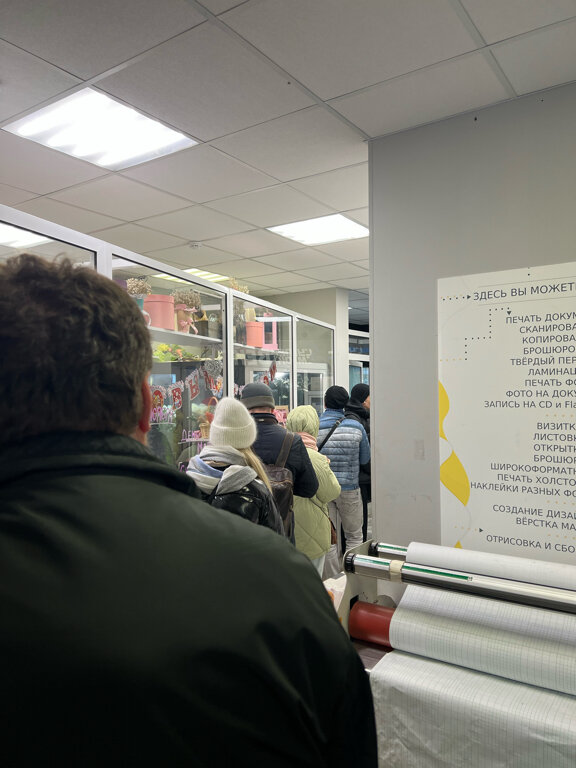 ЗДЕСЬ ВЫ МОЖЕТ
ПЕЧАТЬ ДОКУМ
СКАНИРОВА
КОПИРОВА
БРОШЮРО
ТВЁРДЫЙ ПЕР
ЛАМИНАЦ
ПЕЧАТЬ ФО
ФОТО НА ДОКУ
ЗАПИСЬ НА CD и Fla
ВИЗИТК
ЛИСТОВК
ОТКРЫТК
БРОШЮ
ШИРОКОФОРМАТН
ПЕЧАТЬ ХОЛСТО
НАКЛЕЙКИ РАЗНЫХ ФО
СОЗДАНИЕ ДИЗАЙ
ВЁРСТКА МА
ОТРИСОВКА И СБО